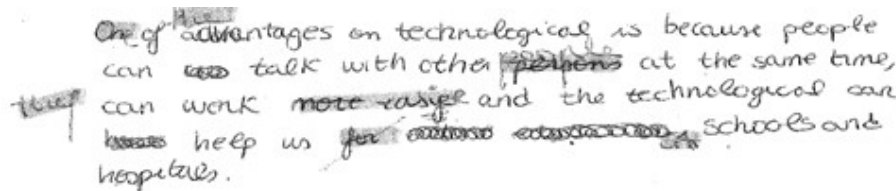 One of the advantages on technological is because people
can talk with other people at the same time,
they can work more easily and the technological can
help us for in schools and
hospitals.